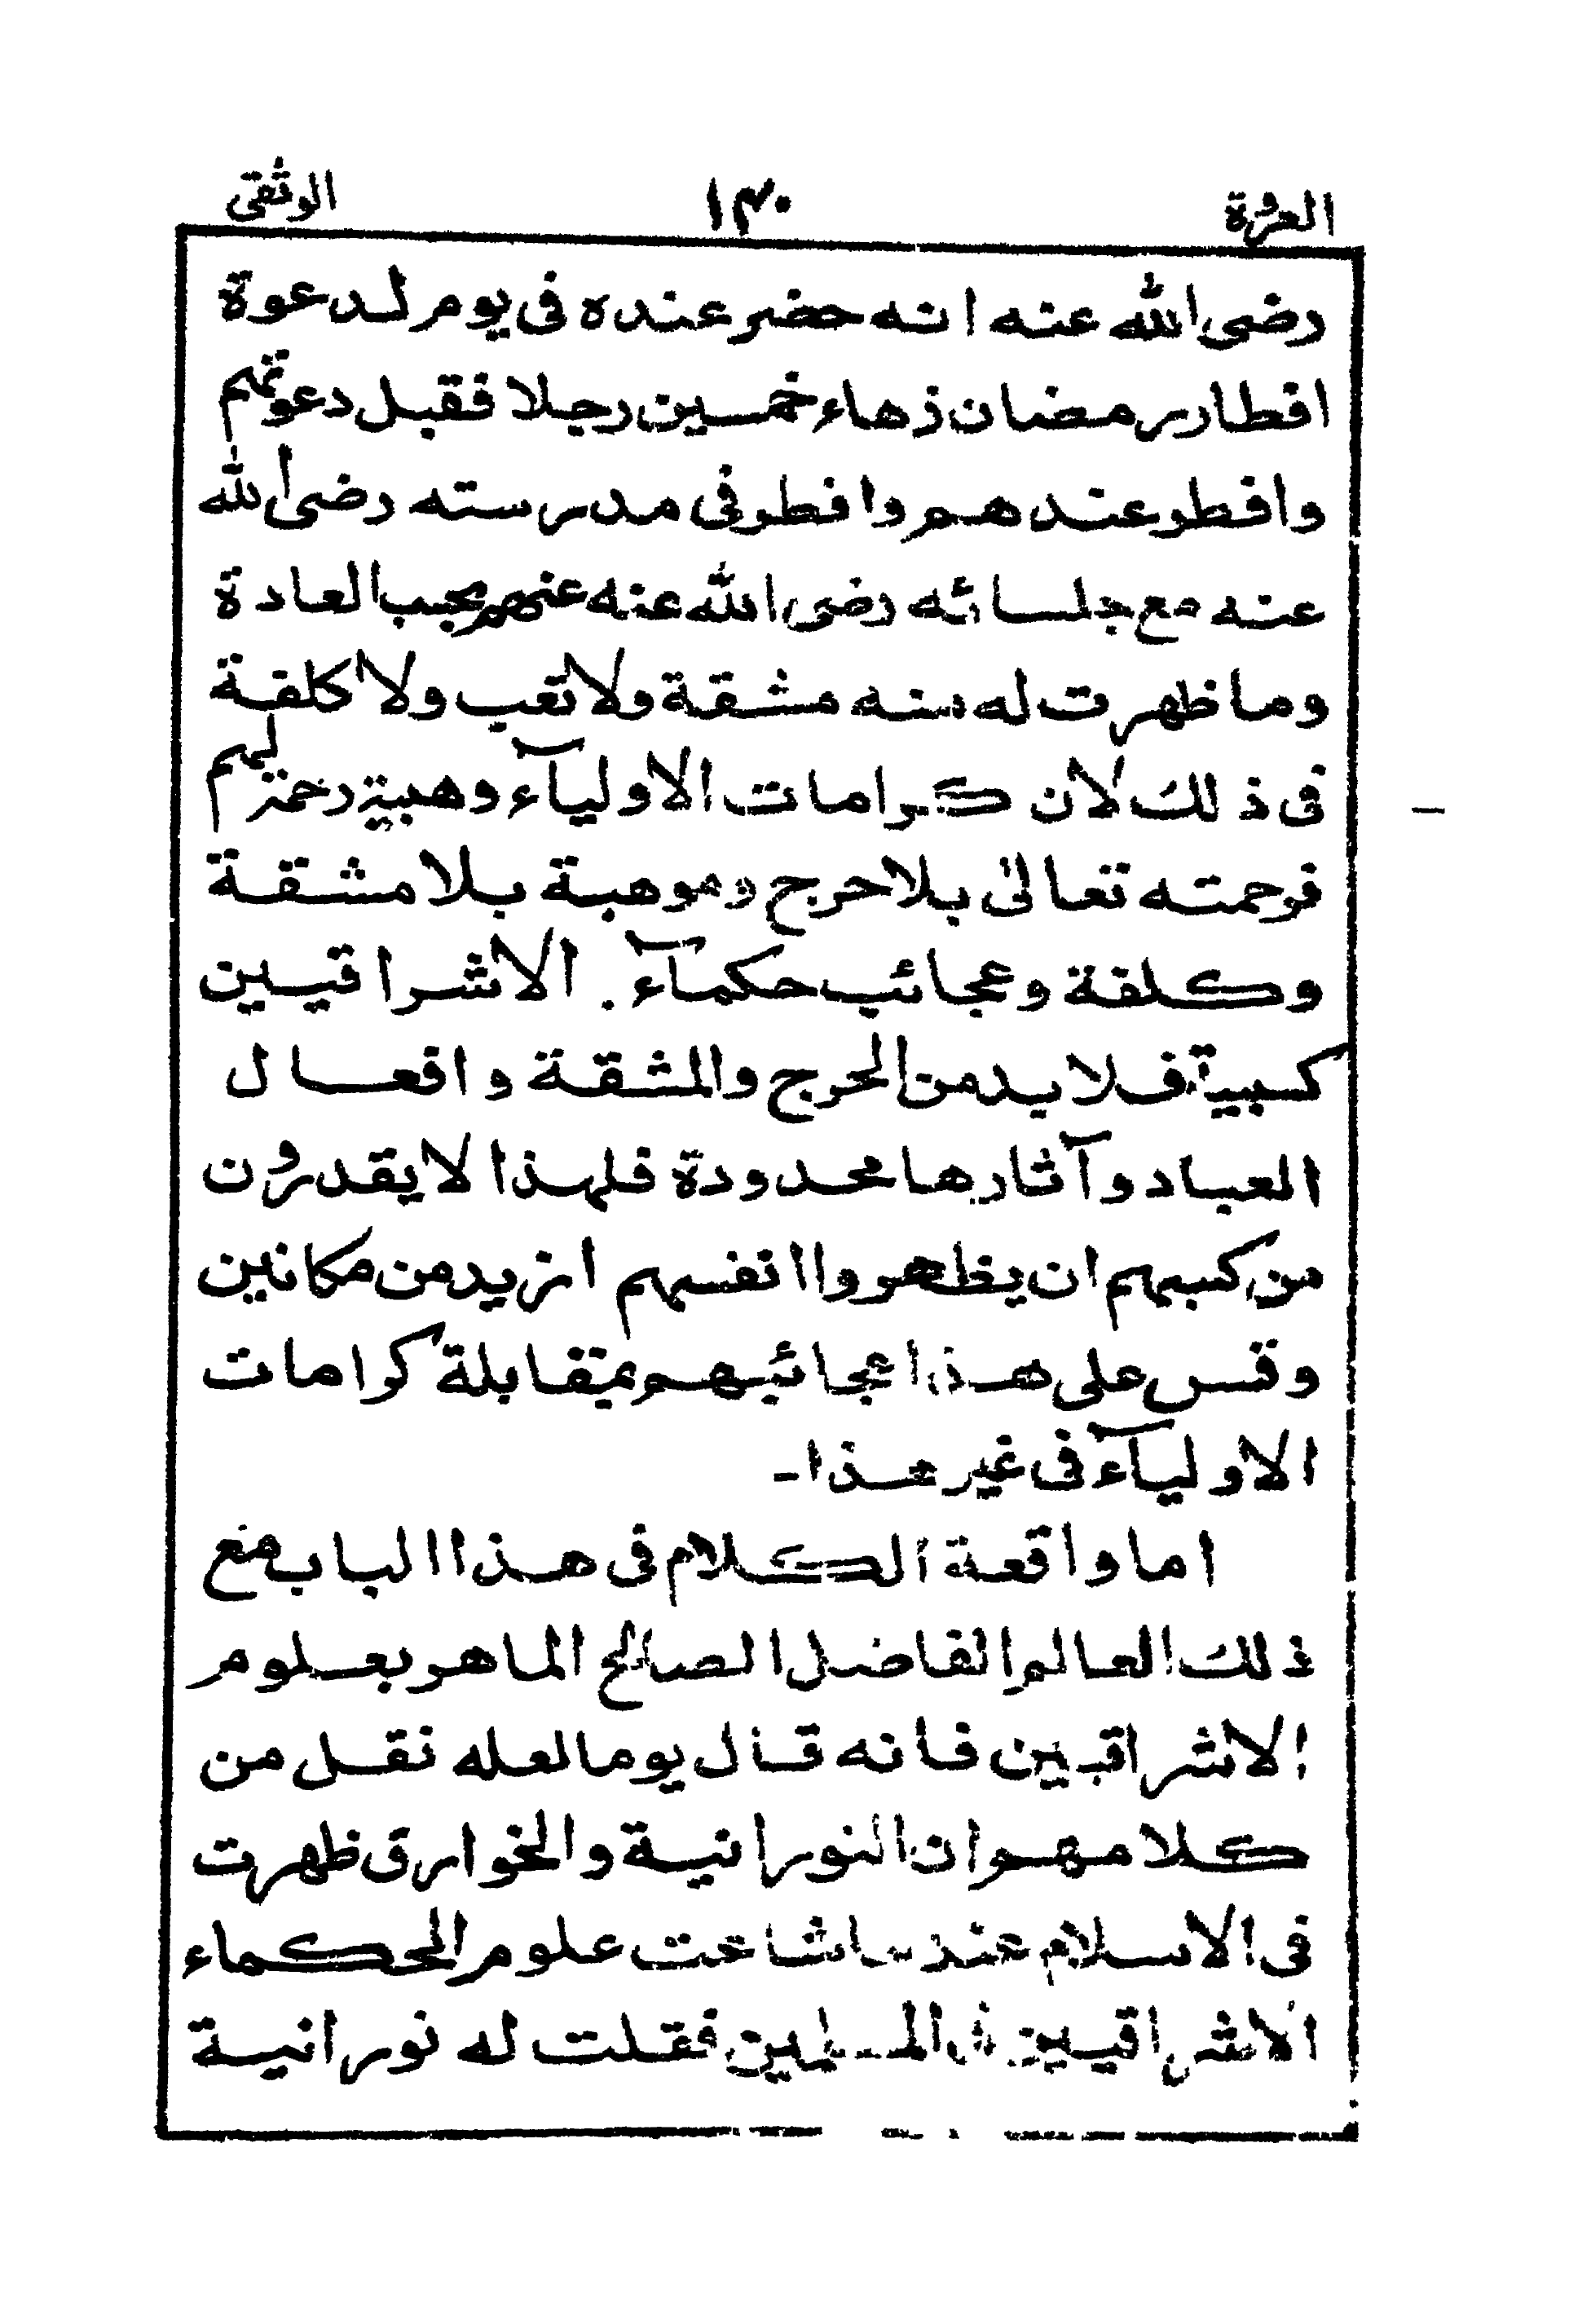 العروة ١٣٠ الوثقى
رضى الله عنه انه حضر عنده فى يوم لدعوة
افطار رمضان زهاء خمسين رجلا فقبل دعوتهم
وافطر عندهم وافطر فى مدرسته رضى الله
عنه مع جلسائه رضى الله عنه عنهم بحسب العادة
وما ظهرت له منه مشقة ولا تعب ولا كلفة
فى ذلك لان كرامات الاولياء وهبية رحمة لهم
فرحمته تعالى بلا حرج وموهبة بلا مشقة
وكلفة وعجائب حكمآء الاشراقيين
كسبية فلا بد من الحرج والمشقة وافعال
العباد وآثارها محدودة فلهذا لا يقدرون
من كسبهم ان يظهروا انفسهم ازيد من مكانين
وقس على هذا عجائبهم بمقابلة كرامات
الاوليآء فى غير هذا۔
اما واقعة الكلام فى هذا الباب مع
ذلك العالم الفاضل الصالح الماهر بعلوم
الاشراقيين فانه قال يوما لعله نقل من
كلامهم ان النورانية والخوارق ظهرت
فى الاسلام عند ما شاعت علوم الحكماء
الاشراقيين فى المسلمين فقلت له نورانية